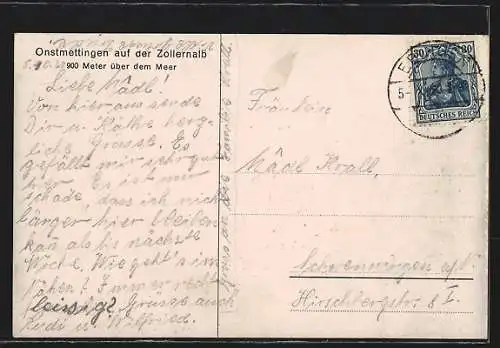 Onstmettingen auf der Zollernalb
900 Meter über dem Meer
Liebe Mädl!
Von hier aus sende
Dir u. Käthe herz-
liche Grüsse. Es
gefällt mir sehr gut
hier. Es ist nur
schade, dass ich nicht
länger hier bleiben
kan als bis nächste
Woche. Wie geht's im
Nähen? Immer recht
fleissig? Grüsse auch
Rudi u. Wilfried.
Gruss an die Familie Krall.
Fräulein
Mädl Krall,
Schwenningen a/N
Hirschbergstr. 8 I.
30 30
DEUTSCHES REICH